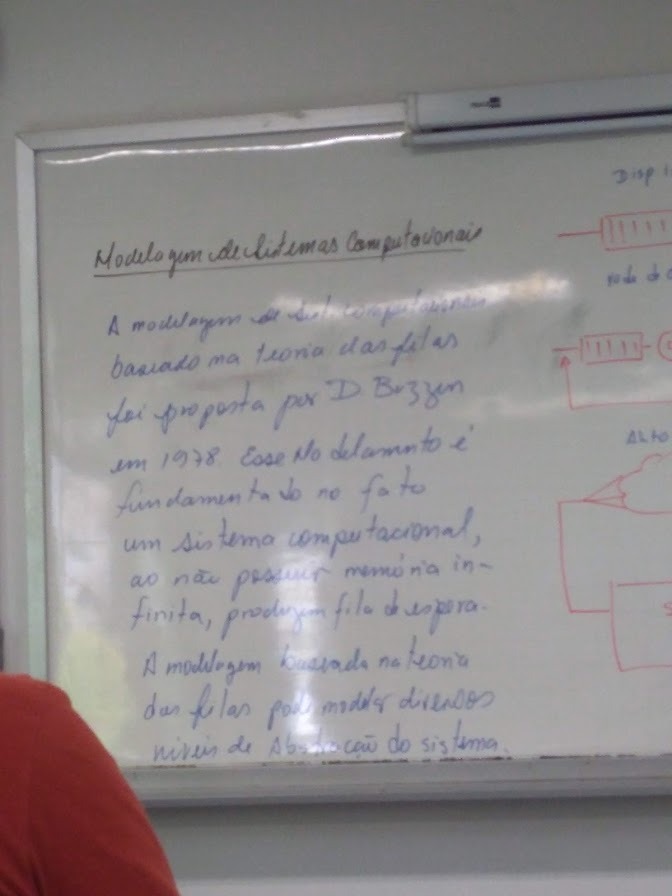 Modelagem de Sistemas Computacionais
A modelagem de sist. computacionais
baseado na teoria das filas
foi proposta por D. Buzzen
em 1978. Esse Modelamento é
fundamentado no fato
um sistema computacional,
ao não possuir memória in-
finita, produzem fila de espera.
A modelagem baseada na teoria
das filas pode modelar diversos
níveis de Abstração do sistema.
Disp
ALTO
S